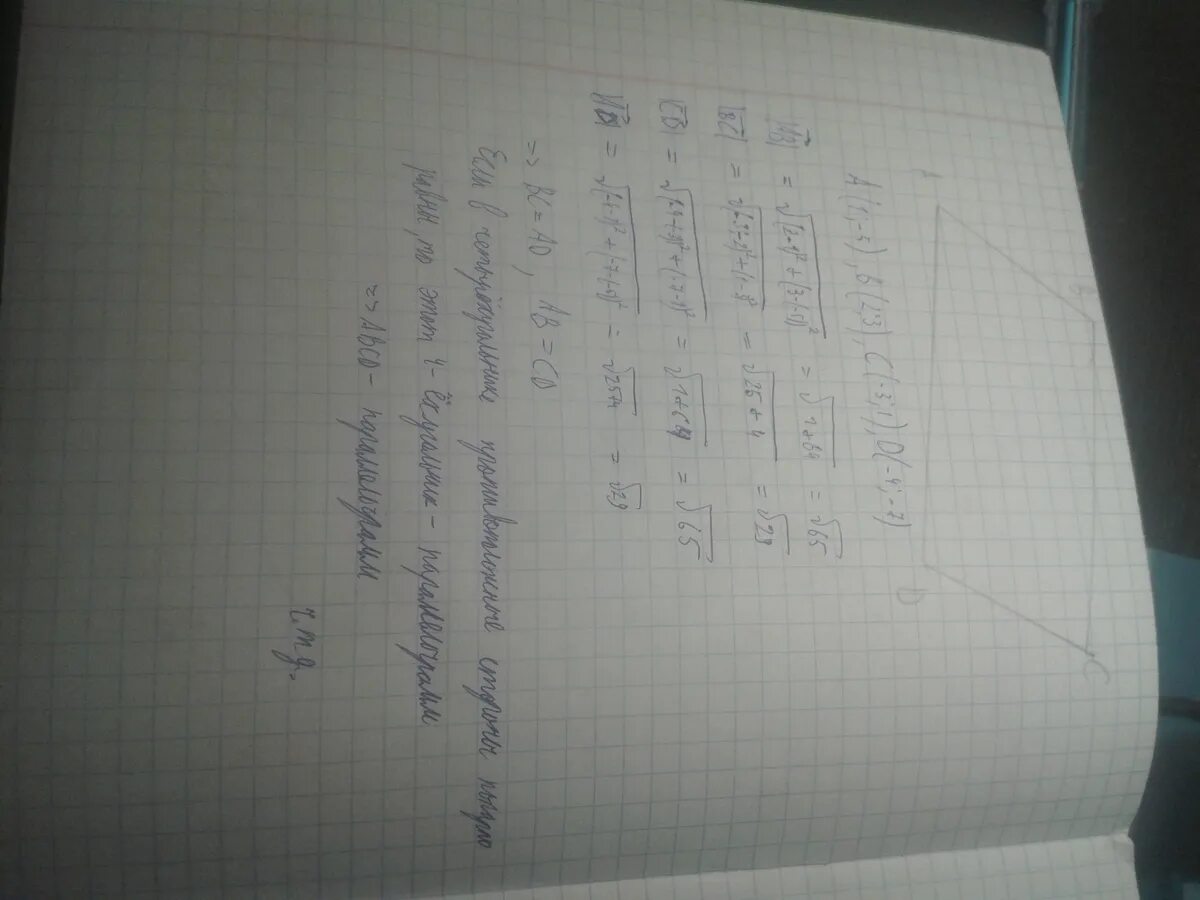 A B C D
A(1;-5), B(2;3), C(-3;1), D(-4;-7)
|AB| = √(2-1)²+(3-(-5))² = √1+64 = √65
|BC| = √(-3-2)²+(1-3)² = √25+4 = √29
|CD| = √(-4+3)²+(-7-1)² = √1+64 = √65
= √25+4 = √29
=> BC = AD, AB = CD
Если в четырёхугольнике противоположные стороны попарно
равны, то этот 4-ёхугольник - параллелограмм
=> ABCD - параллелограмм
ч.т.д.